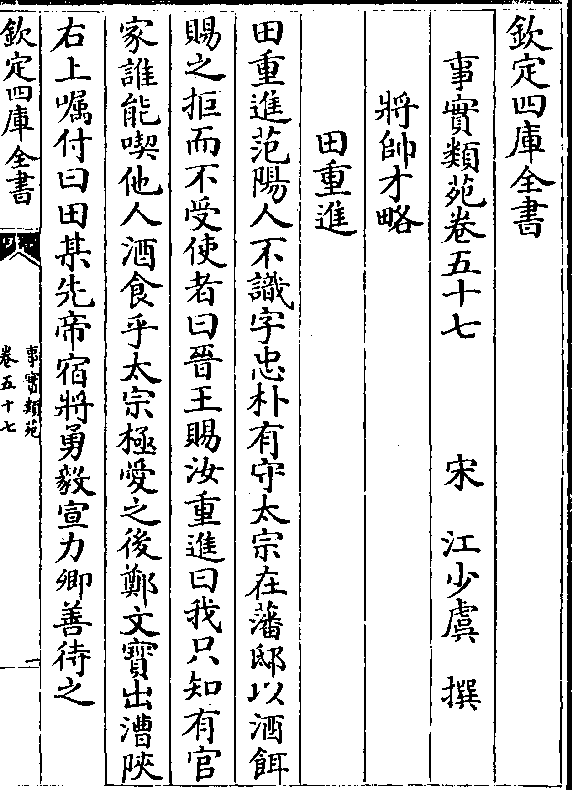 欽定四庫全書
事實類苑卷五十七　宋　江少虞　撰
將帥才略
田重進
田重進范陽人不識字忠朴有守太宗在藩邸以酒餌
賜之拒而不受使者曰晉王賜汝重進曰我只知有官
家誰能喫他人酒食乎太宗極愛之後鄭文寶出漕陜
右上囑付曰田某先帝宿將勇毅宣力卿善待之
欽定四庫全書
事實類苑
卷五十七
一